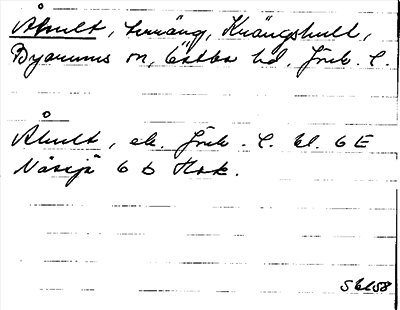 Åhult, terräng, Krängshult,
Byarums sn, Östbo hd, Jönk. l.
Åhult, ek. Jönk. l. bl. 6 E
Nässjö 6 b
S6158